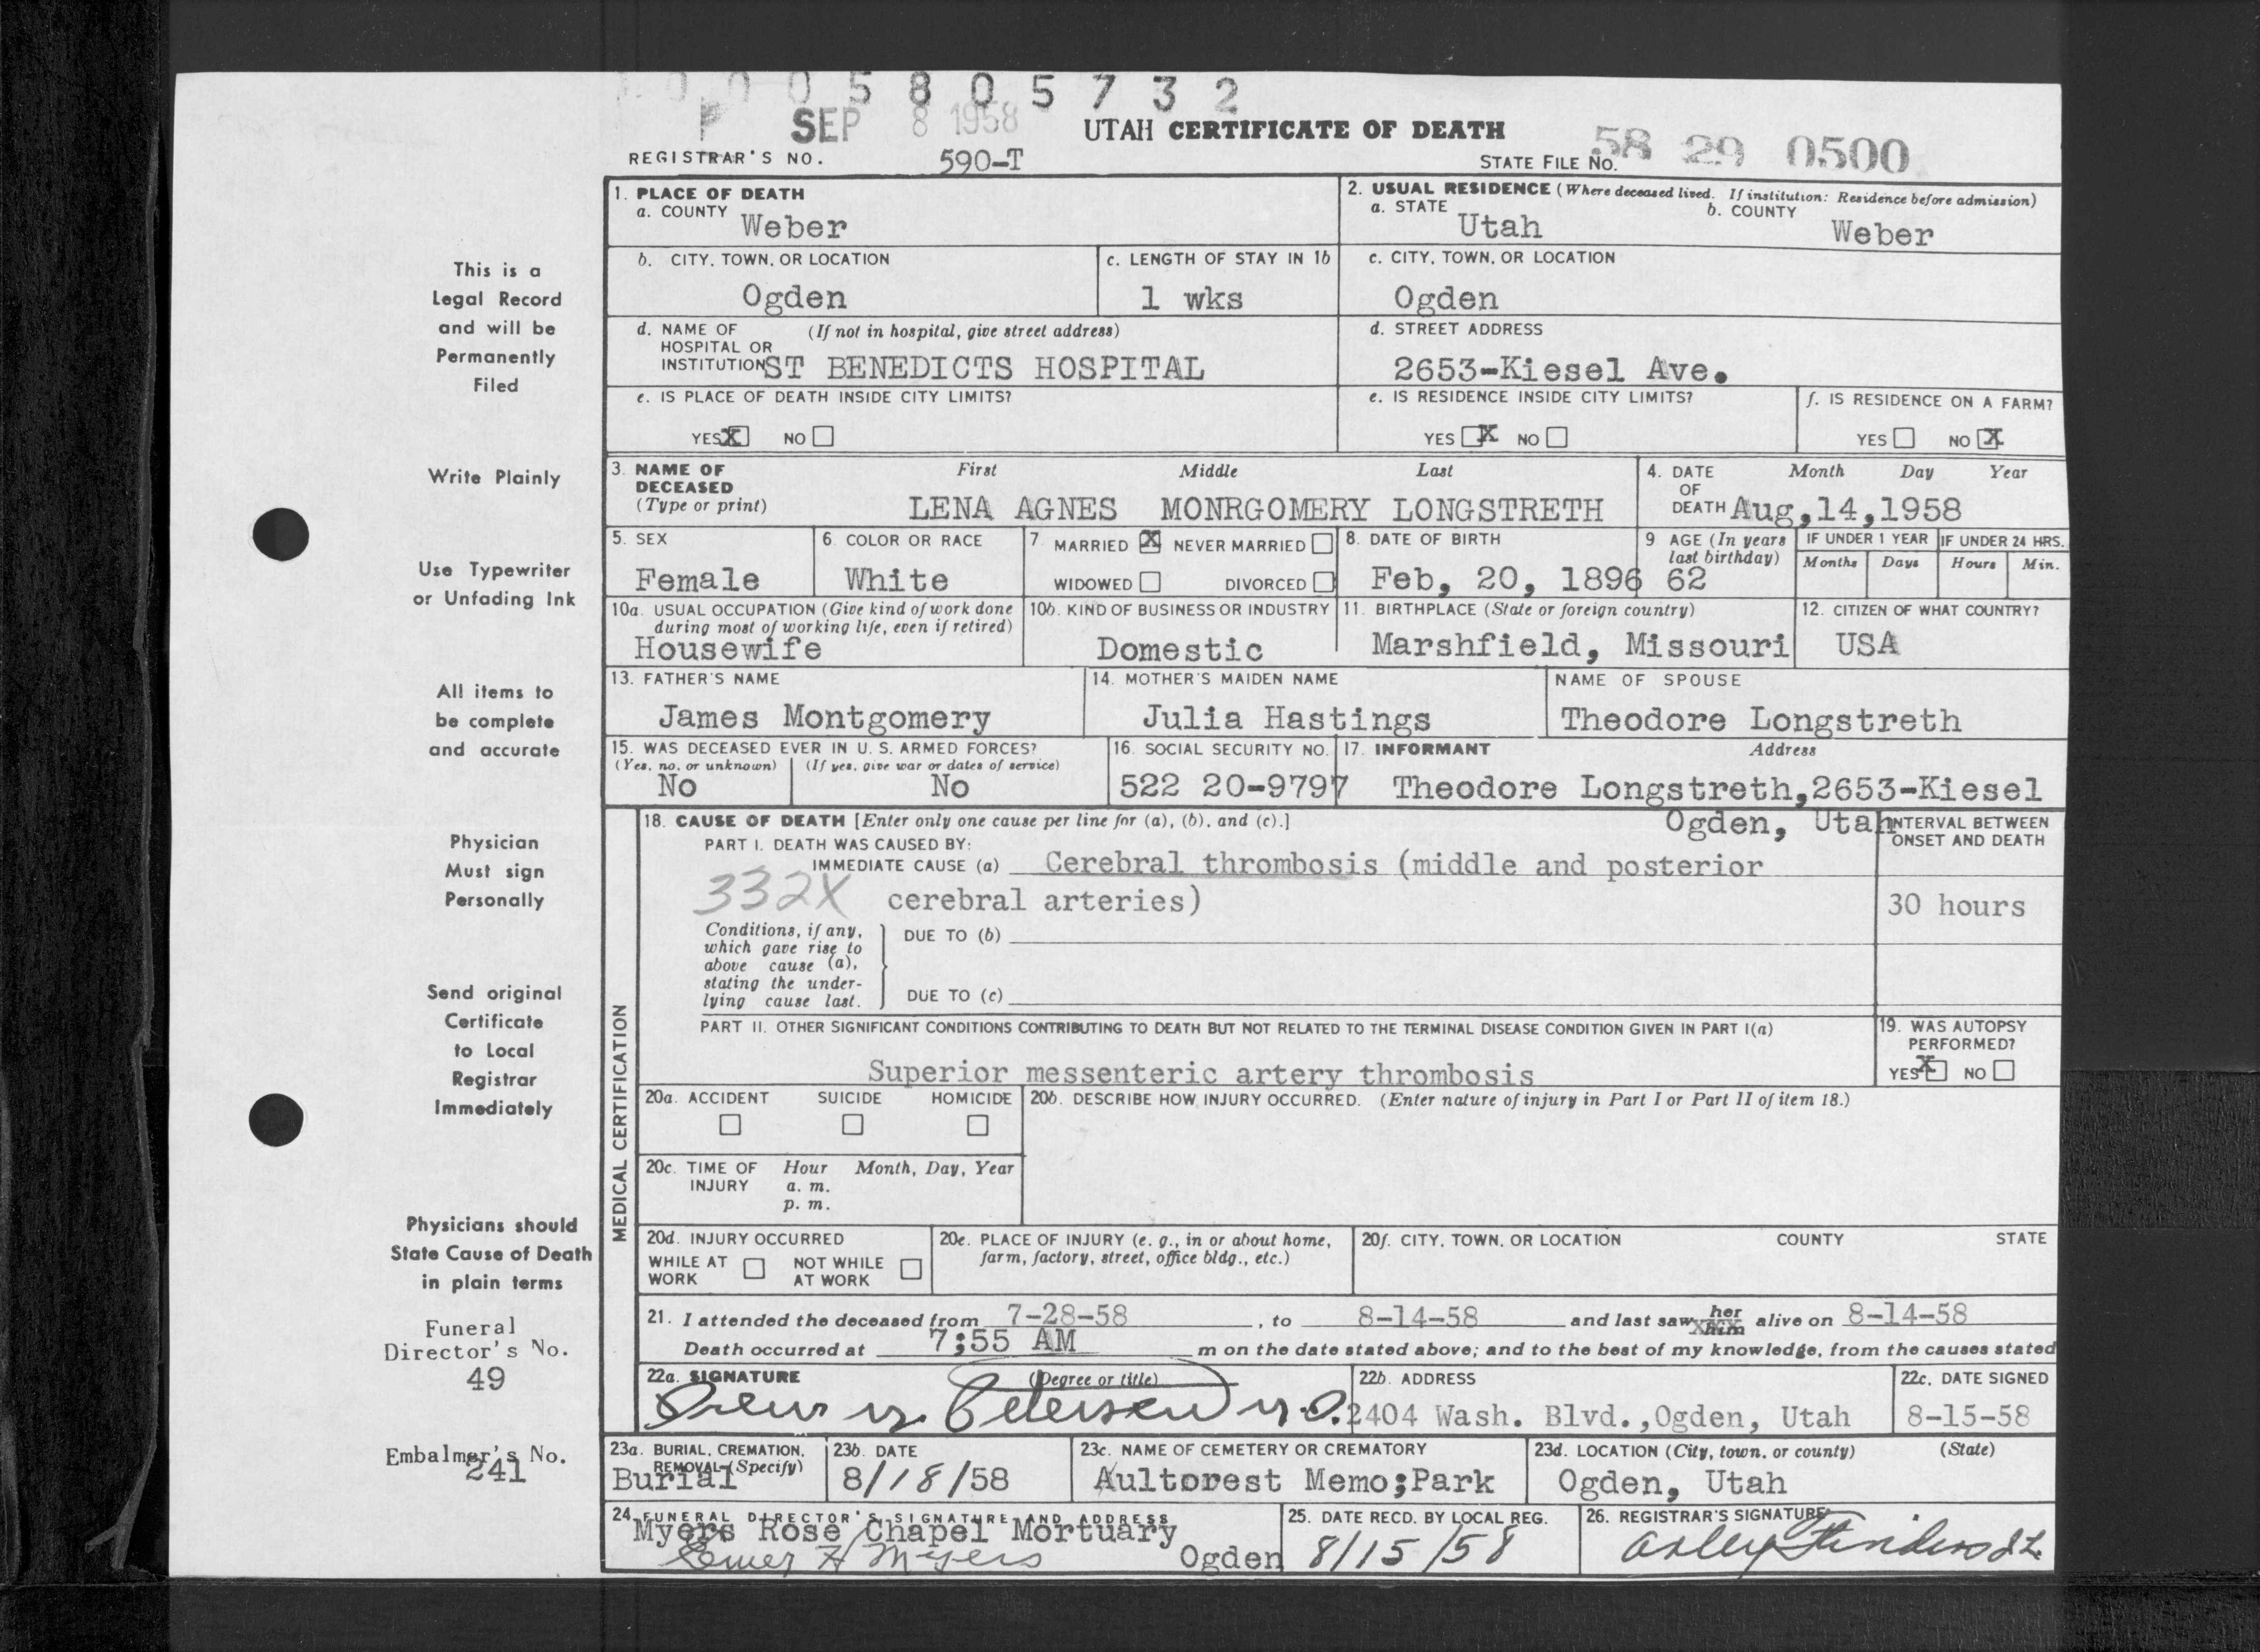 0 0 0 5 8 0 5 7 3 2
SEP 8 1958
UTAH CERTIFICATE OF DEATH
REGISTRAR'S NO. 590-T
STATE FILE NO. 58 29 0500
This is a
Legal Record
and will be
Permanently
Filed
Write Plainly
Use Typewriter
or Unfading Ink
All items to
be complete
and accurate
Physician
Must sign
Personally
Send original
Certificate
to Local
Registrar
Immediately
Physicians should
State Cause of Death
in plain terms
Funeral
Director's No.
49
Embalmer's No.
241
1. PLACE OF DEATH
a. COUNTY Weber
2. USUAL RESIDENCE (Where deceased lived. If institution: Residence before admission)
a. STATE Utah b. COUNTY Weber
b. CITY, TOWN, OR LOCATION
Ogden
c. LENGTH OF STAY IN 1b
1 wks
c. CITY, TOWN, OR LOCATION
Ogden
d. NAME OF HOSPITAL OR INSTITUTION (If not in hospital, give street address)
ST BENEDICTS HOSPITAL
d. STREET ADDRESS
2653-Kiesel Ave.
e. IS PLACE OF DEATH INSIDE CITY LIMITS?
YES X NO
e. IS RESIDENCE INSIDE CITY LIMITS?
YES X NO
f. IS RESIDENCE ON A FARM?
YES NO X
3. NAME OF DECEASED (Type or print)
First Middle Last
LENA AGNES MONRGOMERY LONGSTRETH
4. DATE OF DEATH Month Day Year
Aug,14,1958
5. SEX
Female
6. COLOR OR RACE
White
7. MARRIED X NEVER MARRIED
WIDOWED DIVORCED
8. DATE OF BIRTH
Feb, 20, 1896
9 AGE (In years last birthday)
62
IF UNDER 1 YEAR IF UNDER 24 HRS.
Months Days Hours Min.
10a. USUAL OCCUPATION (Give kind of work done during most of working life, even if retired)
Housewife
10b. KIND OF BUSINESS OR INDUSTRY
Domestic
11. BIRTHPLACE (State or foreign country)
Marshfield, Missouri
12. CITIZEN OF WHAT COUNTRY?
USA
13. FATHER'S NAME
James Montgomery
14. MOTHER'S MAIDEN NAME
Julia Hastings
NAME OF SPOUSE
Theodore Longstreth
15. WAS DECEASED EVER IN U. S. ARMED FORCES?
(Yes, no, or unknown) (If yes, give war or dates of service)
No No
16. SOCIAL SECURITY NO.
522 20-9797
17. INFORMANT Address
Theodore Longstreth,2653-Kiesel
Ogden, Utah
MEDICAL CERTIFICATION
18. CAUSE OF DEATH [Enter only one cause per line for (a), (b), and (c).]
INTERVAL BETWEEN ONSET AND DEATH
PART I. DEATH WAS CAUSED BY:
IMMEDIATE CAUSE (a) Cerebral thrombosis (middle and posterior
332X cerebral arteries)
30 hours
Conditions, if any, which gave rise to above cause (a), stating the underlying cause last.
DUE TO (b)
DUE TO (c)
PART II. OTHER SIGNIFICANT CONDITIONS CONTRIBUTING TO DEATH BUT NOT RELATED TO THE TERMINAL DISEASE CONDITION GIVEN IN PART I(a)
Superior messenteric artery thrombosis
19. WAS AUTOPSY PERFORMED?
YES X NO
20a. ACCIDENT SUICIDE HOMICIDE
20b. DESCRIBE HOW INJURY OCCURRED. (Enter nature of injury in Part I or Part II of item 18.)
20c. TIME OF INJURY Hour Month, Day, Year
a. m.
p. m.
20d. INJURY OCCURRED
WHILE AT WORK NOT WHILE AT WORK
20e. PLACE OF INJURY (e. g., in or about home, farm, factory, street, office bldg., etc.)
20f. CITY, TOWN, OR LOCATION COUNTY STATE
21. I attended the deceased from 7-28-58, to 8-14-58 and last saw her him alive on 8-14-58
Death occurred at 7;55 AM m on the date stated above; and to the best of my knowledge, from the causes stated
22a. SIGNATURE (Degree or title)
Petersen M.D.
22b. ADDRESS
2404 Wash. Blvd.,Ogden, Utah
22c. DATE SIGNED
8-15-58
23a. BURIAL, CREMATION, REMOVAL (Specify)
Burial
23b. DATE
8/18/58
23c. NAME OF CEMETERY OR CREMATORY
Aultorest Memo;Park
23d. LOCATION (City, town, or county) (State)
Ogden, Utah
24. FUNERAL DIRECTOR'S SIGNATURE AND ADDRESS
Myers Rose Chapel Mortuary
Elmer H Myers Ogden
25. DATE RECD. BY LOCAL REG.
8/15/58
26. REGISTRAR'S SIGNATURE